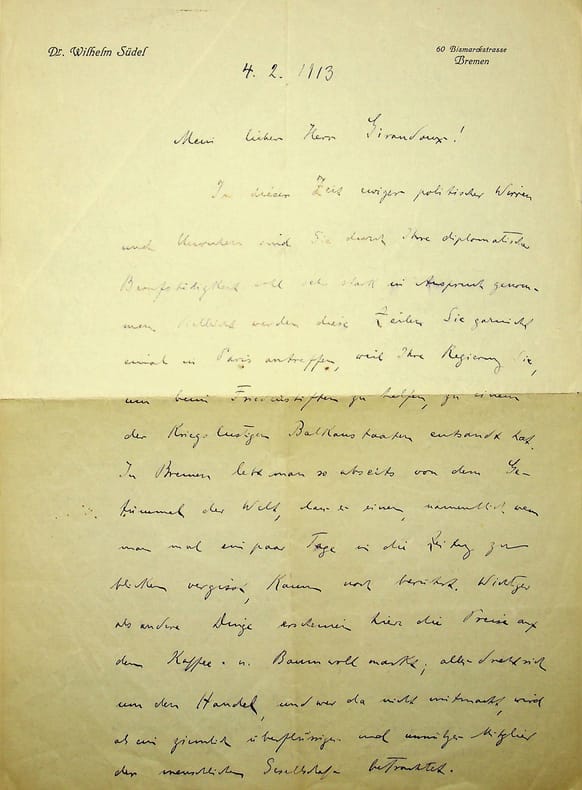 Dr. Wilhelm Südel
60 Bismarckstrasse
Bremen
4. 2. 1913
Mein lieber Herr Giraudoux!
In dieser Zeit ewiger politischer Wirren
und Unruhen sind Sie durch Ihre diplomatische
Berufstätigkeit wohl sehr stark in Anspruch genom-
men. Vielleicht werden diese Zeilen Sie garnicht
einmal in Paris antreffen, weil Ihre Regierung Sie,
um beim Friedenstiften zu helfen, zu einem
der Kriegslustigen Balkanstaaten entsandt hat.
In Bremen lebt man so abseits von dem Ge-
tümmel der Welt, dass es einen, namentlich wenn
man mal ein paar Tage in die Zeitung zu
blicken vergisst, kaum noch berührt. Wichtiger
als andere Dinge erscheinen hier die Preise auf
dem Kaffee- u. Baumwollmarkt; alles dreht sich
um den Handel, und wer da nicht mitmacht, wird
als ein ziemlich überflüssiges und unnützes Mitglied
der menschlichen Gesellschaft betrachtet.